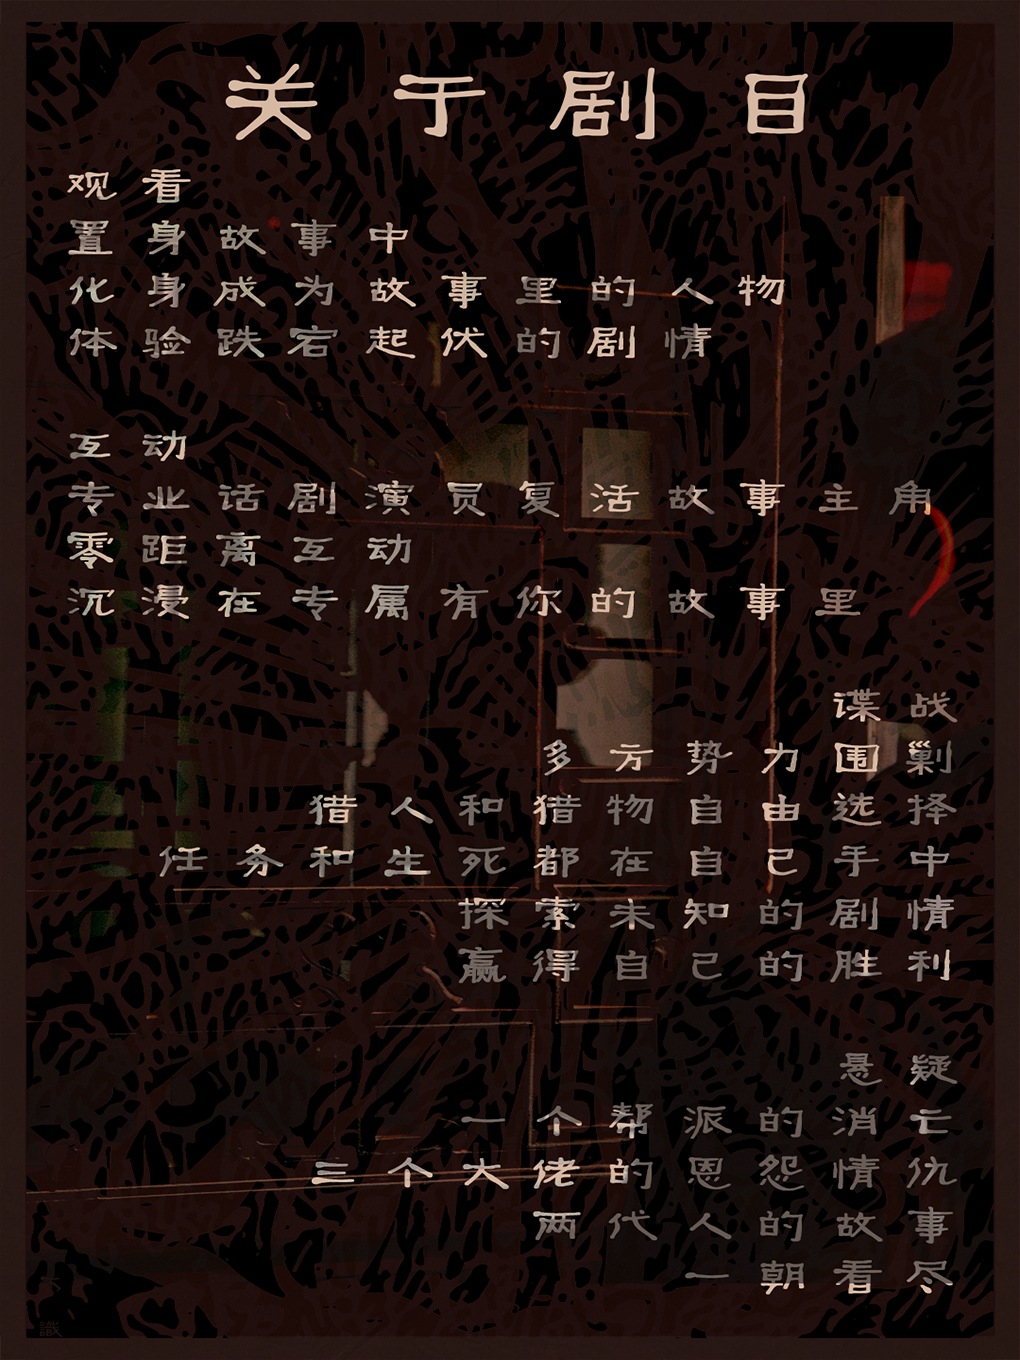 关于剧目
观看
置身故事中
化身成为故事里的人物
体验跌宕起伏的剧情
互动
专业话剧演员复活故事主角
零距离互动
沉浸在专属有你的故事里
谍战
多方势力围剿
猎人和猎物自由选择
任务和生死都在自己手中
探索未知的剧情
赢得自己的胜利
悬疑
一个帮派的消亡
三个大佬的恩怨情仇
两代人的故事
一朝看尽